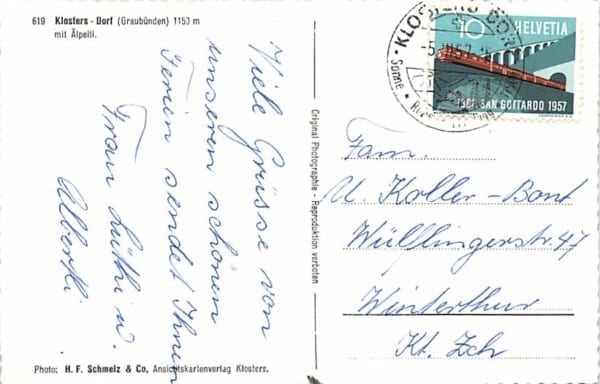 619 Klosters - Dorf (Graubünden) 1150 m
mit Älpelti.
Viele Grüsse von
unseren schönen
Ferien sendet Ihnen
Frau Lüthi u.
Alberti
Original Photographie - Reproduktion verboten
Photo: H. F. Schmelz & Co, Ansichtskartenverlag Klosters.
KLOSTERS DORF
Sonne
10 HELVETIA
1881 SAN GOTTARDO 1957
Fam.
U. Koller-Bont
Wülflingerstr. 47
Winterthur
Kt. Zch